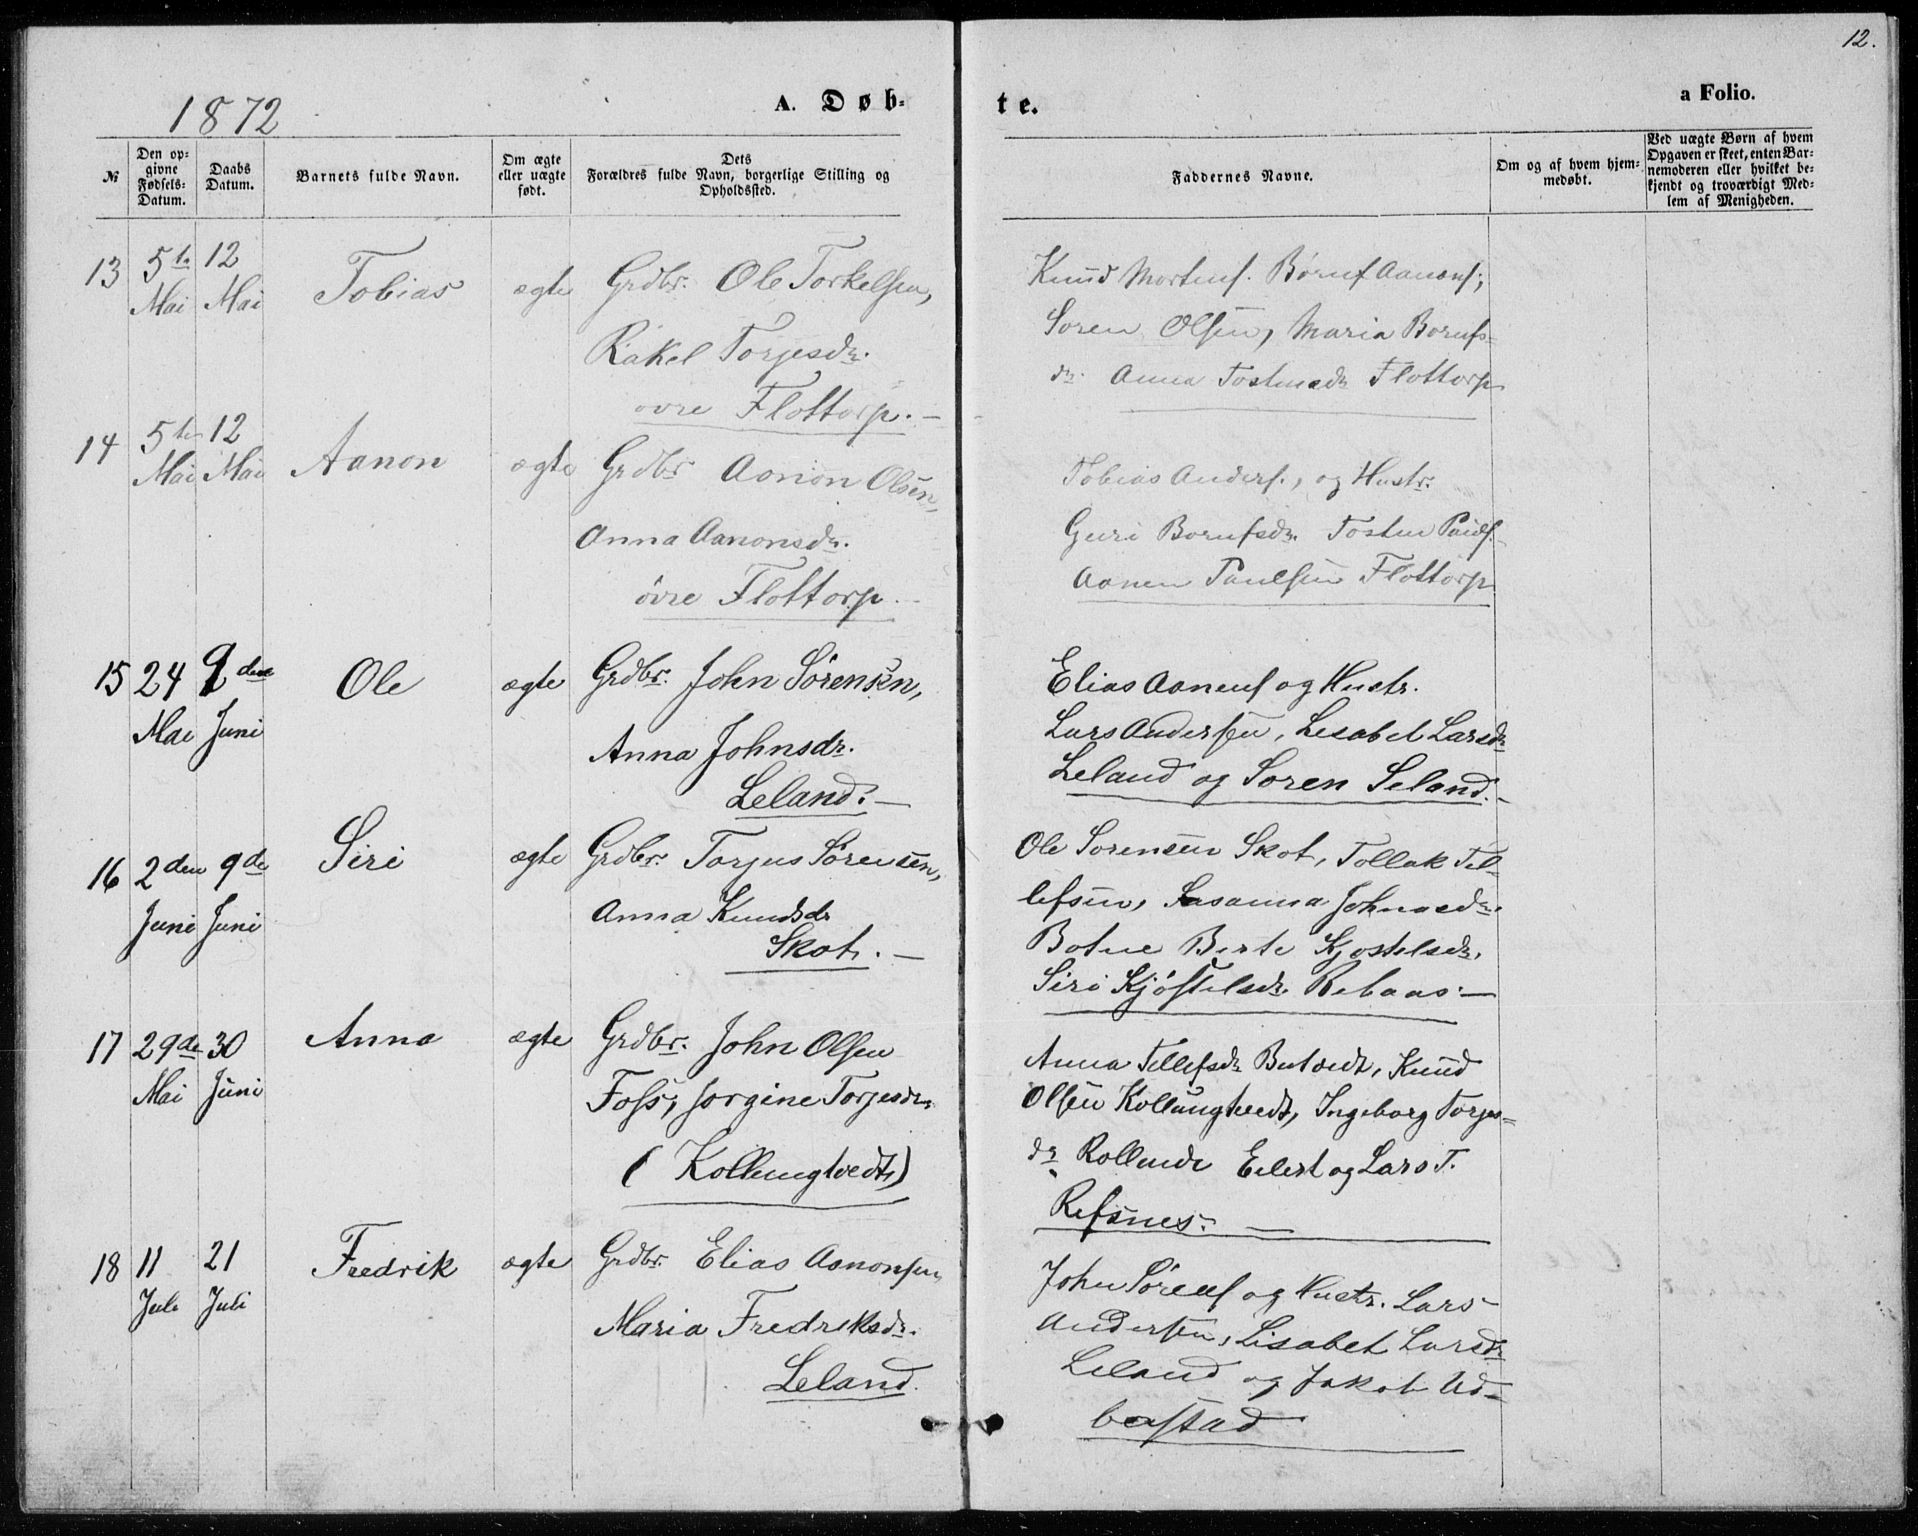 12.
1872
A. Døb-
te.
a Folio.
№
Den op-
givne
Fødsels-
Datum.
Daabs
Datum.
Barnets fulde Navn.
Om ægte
eller uægte
født.
Dets
Forældres fulde Navn, borgerlige Stilling og
Opholdssted.
Faddernes Navne.
Om og af hvem hjem-
medøbt.
Ved uægte Børn af hvem
Opgaven er skeet, enten Bar-
nemoderen eller hvilket be-
kjendt og troværdigt Med-
lem af Menigheden.
13
5te
Mai
12
Mai
Tobias
ægte
Grdbr. Ole Torkelsen,
Rakel Torjesdr.
øvre Flottorp.
Knud Mortens. Børuf Aanons,
Soren Olsen, Maria Borufs-
dr. Anna Tostensdr Flottorp
14
5te
Mai
12
Mai
Aanon
ægte
Grdbr Aanon Olsen,
Anna Aanonsdr.
övre Flottorp.
Tobias Anders., og Hustr.
Guri Borufsdr. Tosten Pauls.
Aanen Paulsen Flottorp
15
24
Mai
9den
Juni
Ole
ægte
Grdbr. John Sörensen,
Anna Johnsdr.
Leland. —
Elias Aanens og Hustr.
Lars Andersen, Lisabet Larsdr
Leland og Soren Seland. -
16
2den
Juni
9de
Juni
Siri
ægte
Grdbr. Torjus Sörensen,
Anna Knudsdr
Skot. —
Ole Sorensen Skot, Tollak Tel-
lefsen, Susanna Johnsdr.
Botne Berte Kjostelsdr.
Siri Kjöstelsdr. Rebaas. —
17
29de
Mai
30
Juni
Anna
ægte
Grdbr. John Olsen
Foss, Jorgine Torjesdr.
(Kollungtvedt)
Anna Tellefsdr Knud
Olsen Kollungtvedt, Ingeborg Torjes-
dr Eilert og Lars T.
Refsnes. —
18
11
Juli
21
Juli
Fredrik
ægte
Grdbr. Elias Aanonsen,
Maria Fredriksdr.
Leland.
John Sörens og Hustr. Lars
Andersen, Lisabet Larsdr
Leland og Jakob Ud-
berstad